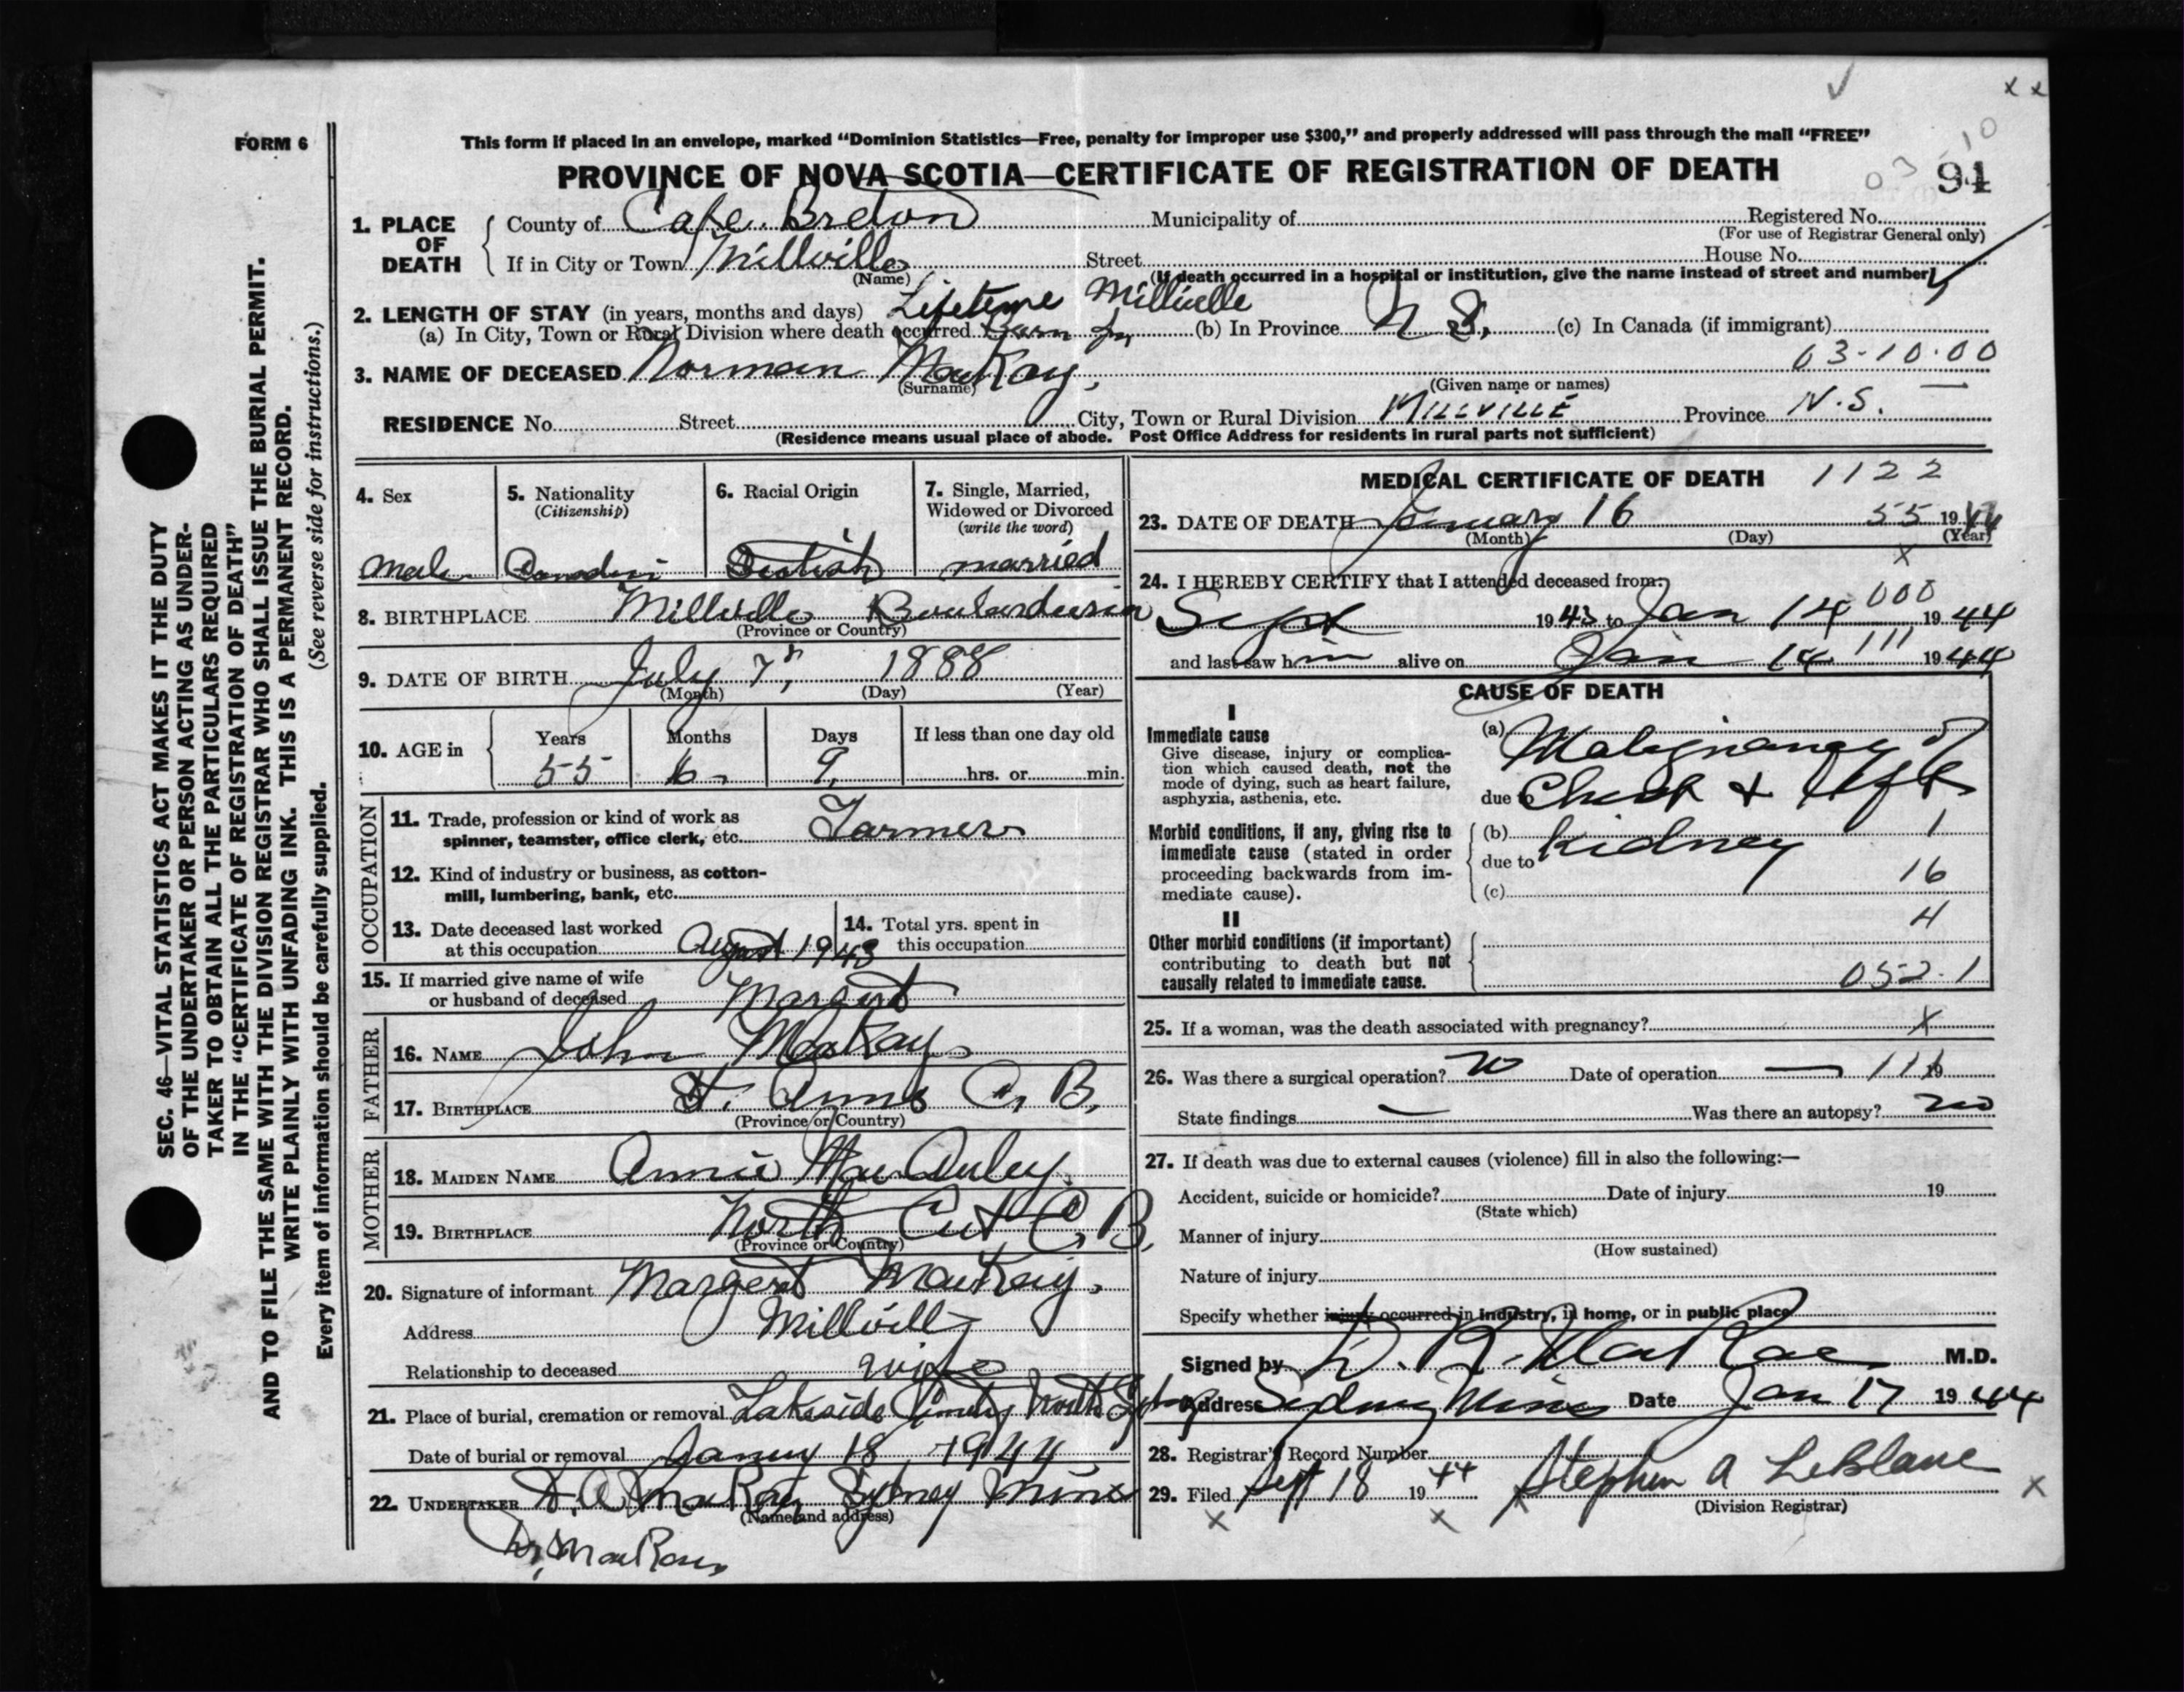 FORM 6
This form if placed in an envelope, marked "Dominion Statistics—Free, penalty for improper use $300," and properly addressed will pass through the mail "FREE"
PROVINCE OF NOVA SCOTIA—CERTIFICATE OF REGISTRATION OF DEATH
03-10
91
1. PLACE OF DEATH
County of Cape Breton Municipality of Registered No.
(For use of Registrar General only)
If in City or Town Millville Street House No.
(Name) (If death occurred in a hospital or institution, give the name instead of street and number)
2. LENGTH OF STAY (in years, months and days) Lifetime Millville
(a) In City, Town or Rural Division where death occurred Born in (b) In Province N S. (c) In Canada (if immigrant)
03-10.00
3. NAME OF DECEASED Norman MacKay,
(Surname) (Given name or names)
RESIDENCE No. Street City, Town or Rural Division MILLVILLE Province N.S.
(Residence means usual place of abode. Post Office Address for residents in rural parts not sufficient)
4. Sex
Male
5. Nationality
(Citizenship)
6. Racial Origin
Scotish
7. Single, Married,
Widowed or Divorced
(write the word)
married
8. BIRTHPLACE Millville Boularderie
(Province or Country)
9. DATE OF BIRTH July 7, 1888
(Month) (Day) (Year)
10. AGE in
Years Months Days If less than one day old
55 6 9 hrs. or min.
OCCUPATION
11. Trade, profession or kind of work as
spinner, teamster, office clerk, etc. Farmer
12. Kind of industry or business, as cotton-
mill, lumbering, bank, etc.
13. Date deceased last worked
at this occupation August 1943
14. Total yrs. spent in
this occupation
15. If married give name of wife
or husband of deceased Margert
FATHER
16. NAME John MacKay
17. BIRTHPLACE St. Anns C. B.
(Province or Country)
MOTHER
18. MAIDEN NAME Annie MacAuley.
19. BIRTHPLACE North Cut C. B.
(Province or Country)
20. Signature of informant Margert MacKay.
Address Millville
Relationship to deceased wife
21. Place of burial, cremation or removal Lakeside North Sydney
Date of burial or removal 18, 1944
22. UNDERTAKER Sydney Mines
(Name and address)
MEDICAL CERTIFICATE OF DEATH 1122
23. DATE OF DEATH January 16 55 1944
(Month) (Day) (Year)
x
24. I HEREBY CERTIFY that I attended deceased from:
000
Sept 1943 to Jan 14 1944
and last saw him alive on Jan 14 111 1944
CAUSE OF DEATH
I
Immediate cause
Give disease, injury or complica-
tion which caused death, not the
mode of dying, such as heart failure,
asphyxia, asthenia, etc.
(a) Malignancy of
due to Cheek &
Morbid conditions, if any, giving rise to
immediate cause (stated in order
proceeding backwards from im-
mediate cause).
(b) Kidney 1
due to
16
(c)
II
Other morbid conditions (if important)
contributing to death but not
causally related to immediate cause.
4
052.1
25. If a woman, was the death associated with pregnancy? X
26. Was there a surgical operation? no Date of operation — 111 19
State findings — Was there an autopsy? no
27. If death was due to external causes (violence) fill in also the following:—
Accident, suicide or homicide? Date of injury 19
(State which)
Manner of injury
(How sustained)
Nature of injury
Specify whether injury occurred in industry, in home, or in public place
Signed by D. R. MacRae M.D.
Address Sydney Mines Date Jan 17 1944
28. Registrar's Record Number
29. Filed Sept 18 1944 Stephen A LeBlanc
(Division Registrar)
SEC. 46—VITAL STATISTICS ACT MAKES IT THE DUTY
OF THE UNDERTAKER OR PERSON ACTING AS UNDER-
TAKER TO OBTAIN ALL THE PARTICULARS REQUIRED
IN THE "CERTIFICATE OF REGISTRATION OF DEATH"
AND TO FILE THE SAME WITH THE DIVISION REGISTRAR WHO SHALL ISSUE THE BURIAL PERMIT.
WRITE PLAINLY WITH UNFADING INK. THIS IS A PERMANENT RECORD.
Every item of information should be carefully supplied. (See reverse side for instructions.)